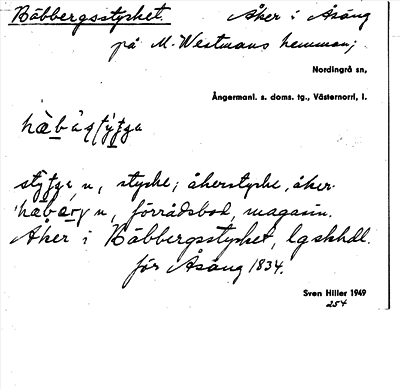 Häbbergsstycket. Åker i Åsäng
på M. Westmans hemman;
Nordingrå sn,
Ångermanl. s. doms. tg., Västernorrl. l.
stycke; åkerstycke, åker.
n, förrådsbod, magasin.
Åker i Häbbergsstycket, lgskhdl.
för Åsäng 1834.
Sven Hiller 1949
254